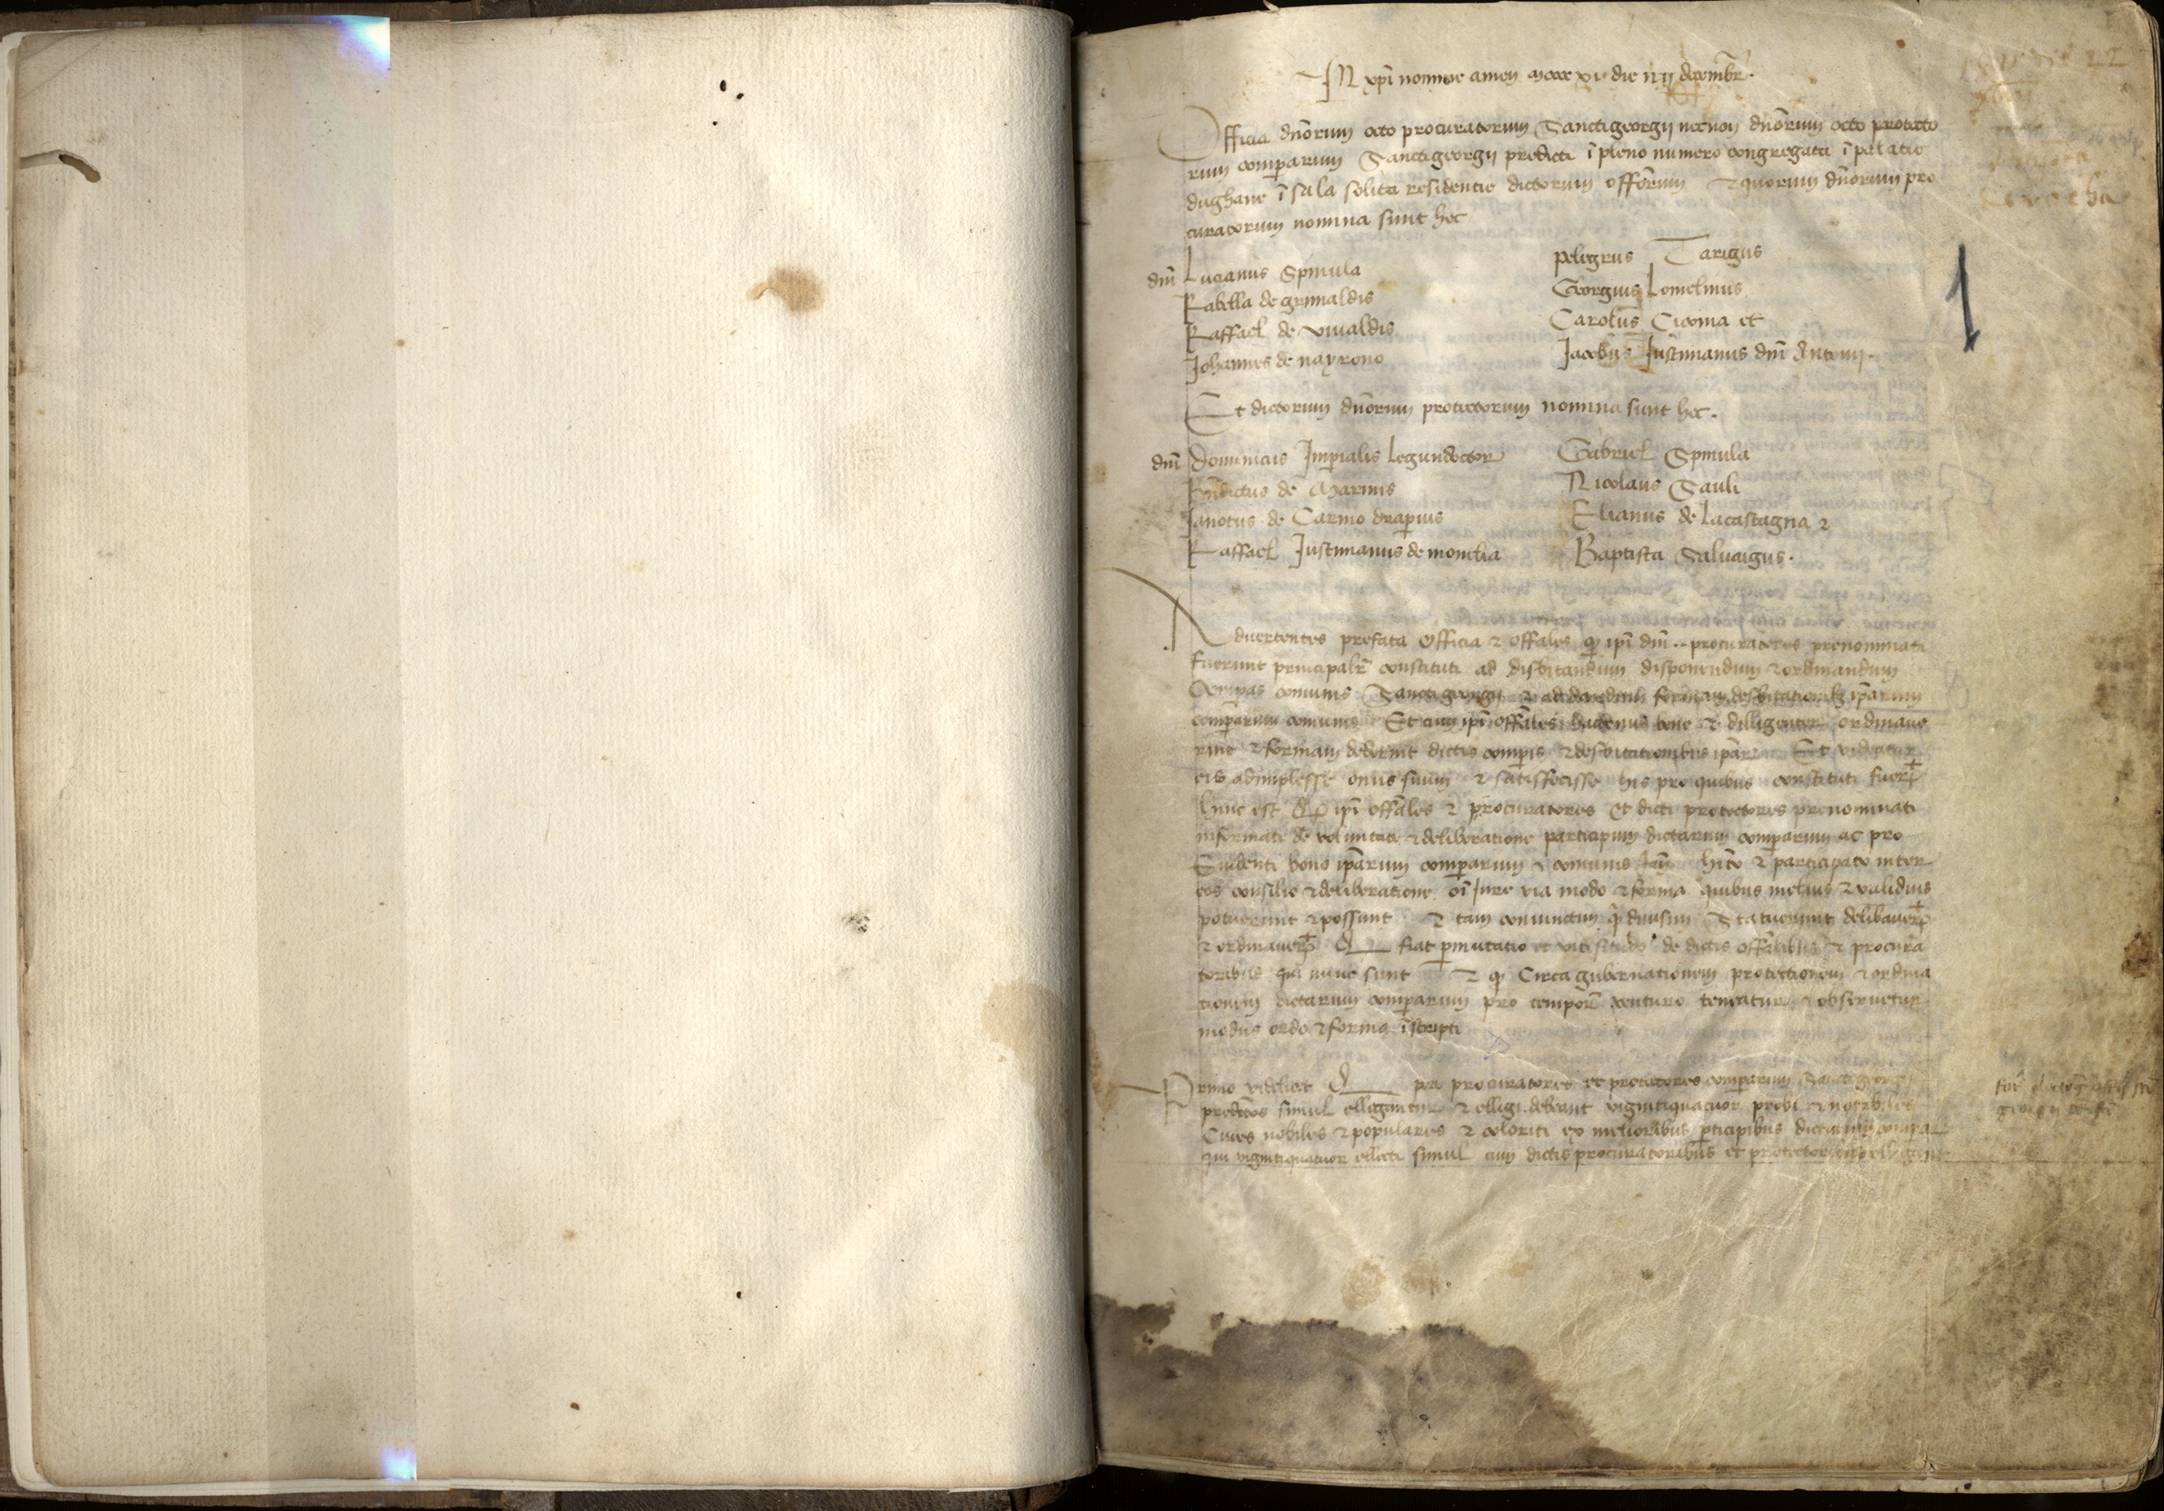 In xpi nomine amen mcccc xi die iiii decembr.
Officia dnorum octo procuratorum Sanctigeorgij necnon dnorum octo protecto
rum comperarum Sanctigeorgij predicti i pleno numero congregata i palacio
dughane i sala solita residentie dictorum offorum Et quorum dnorum pro
curatorum nomina sunt hec
dni Lucianus Spinula
Rabella de grimaldis
Raffael de vivaldis
Johannes de nayrono
pelegrus Tarigus
Georgius Lomelinus
Carolus Cicoina et
Jacobus Justinianus dni Antonij.
Et dictorum dnorum protectorum nomina sunt hec.
dni Dominicus Imperialis legundoctor
Bndictus de Marinis
Janotus de Carmo draperius
Raffael Justinianus de moneta
Gabriel Spinula
Nicolaus Sauli
Elianus de lacastagna &
Baptista Salvaigus.
Advertentes prefata officia & offales q ipi dni .. procuratores prenominati
fuerunt principalr constituti ad disbitandum disponendum & ordinandum
comperas comunis Sancti georgij & ad dandum formam desbitationibus iparum
comperarum comunis Et cum ipi offales hactenus bene & dilligenter ordinave
rint & formam dederint dictis comperis & desbitationibus ipar Et videatur
eis adimplesse onus suum & satisfecisse his pro quibus constituti fuer
hinc est Q ipi offales & procuratores et dicti protectores prenominati
informati de voluntate & deliberatione participum dictarum comperarum ac pro
Evidenti bono iparum comperarum & comunis hito & participato inter
eos consilio & deliberatione oi jure via modo & forma quibus melius & validius
potuerunt & possunt & tam coniunctim q divisim Statuerunt delibaver
& ordinaver Q fiat permutatio et vicisitudo de dictis offalibus & procura
toribus qui nunc sunt Et q Circa gubernationem protectionem & ordina
tionem dictarum comperarum pro tempor venturo teneatur & observetur
modus ordo & forma iscripti
Primo videlicet Q per procuratores et protectores comperarum Sancti georgij
predictos simul elligantur & elligi debeant vigintiquatuor probi & notabiles
Cives nobiles & populares & coloriti ex melioribus participibus dictarum compar
qui vigintiquatuor ellecti simul cum dictis procuratoribus et protectoribus elligant
1